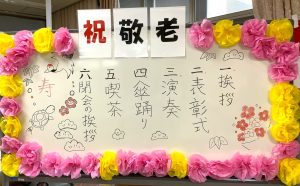 祝敬老
一挨拶
二表彰式
三演奏
四盆踊り
五喫茶
六閉会の挨拶
寿